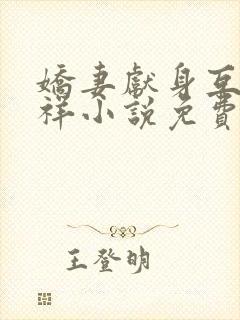 嬌妻獻身互
祥小說免費
王登明